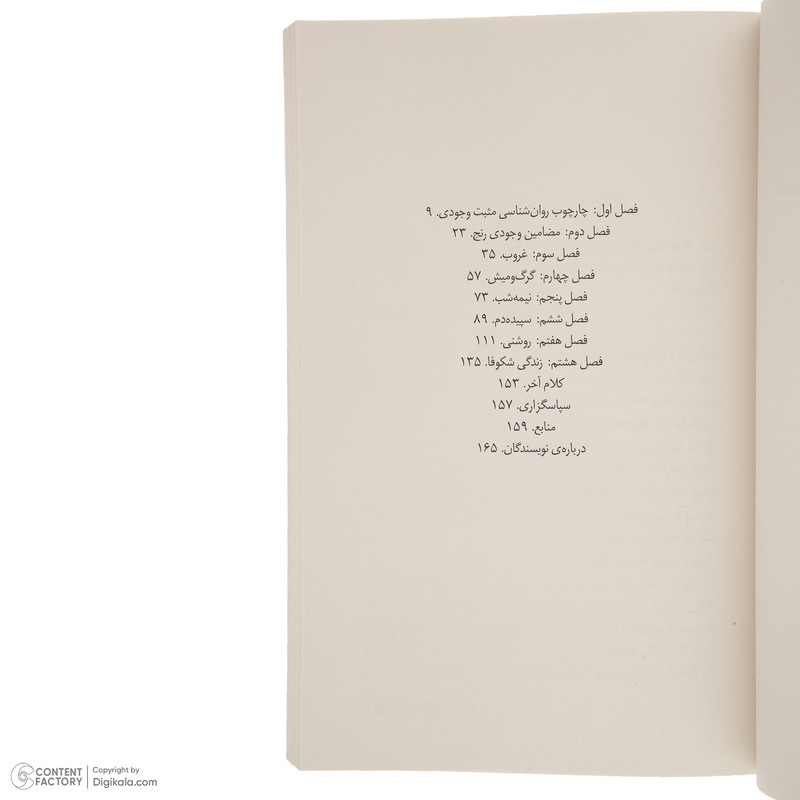 فصل اول: چارچوب روان‌شناسی مثبت وجودی. ۹
فصل دوم: مضامین وجودی رنج. ۲۳
فصل سوم: غروب. ۳۵
فصل چهارم: گرگ‌ومیش. ۵۷
فصل پنجم: نیمه‌شب. ۷۳
فصل ششم: سپیده‌دم. ۸۹
فصل هفتم: روشنی. ۱۱۱
فصل هشتم: زندگی شکوفا. ۱۳۵
کلام آخر. ۱۵۳
سپاسگزاری. ۱۵۷
منابع. ۱۵۹
درباره‌ی نویسندگان. ۱۶۵
CONTENT FACTORY
Copyright by
Digikala.com